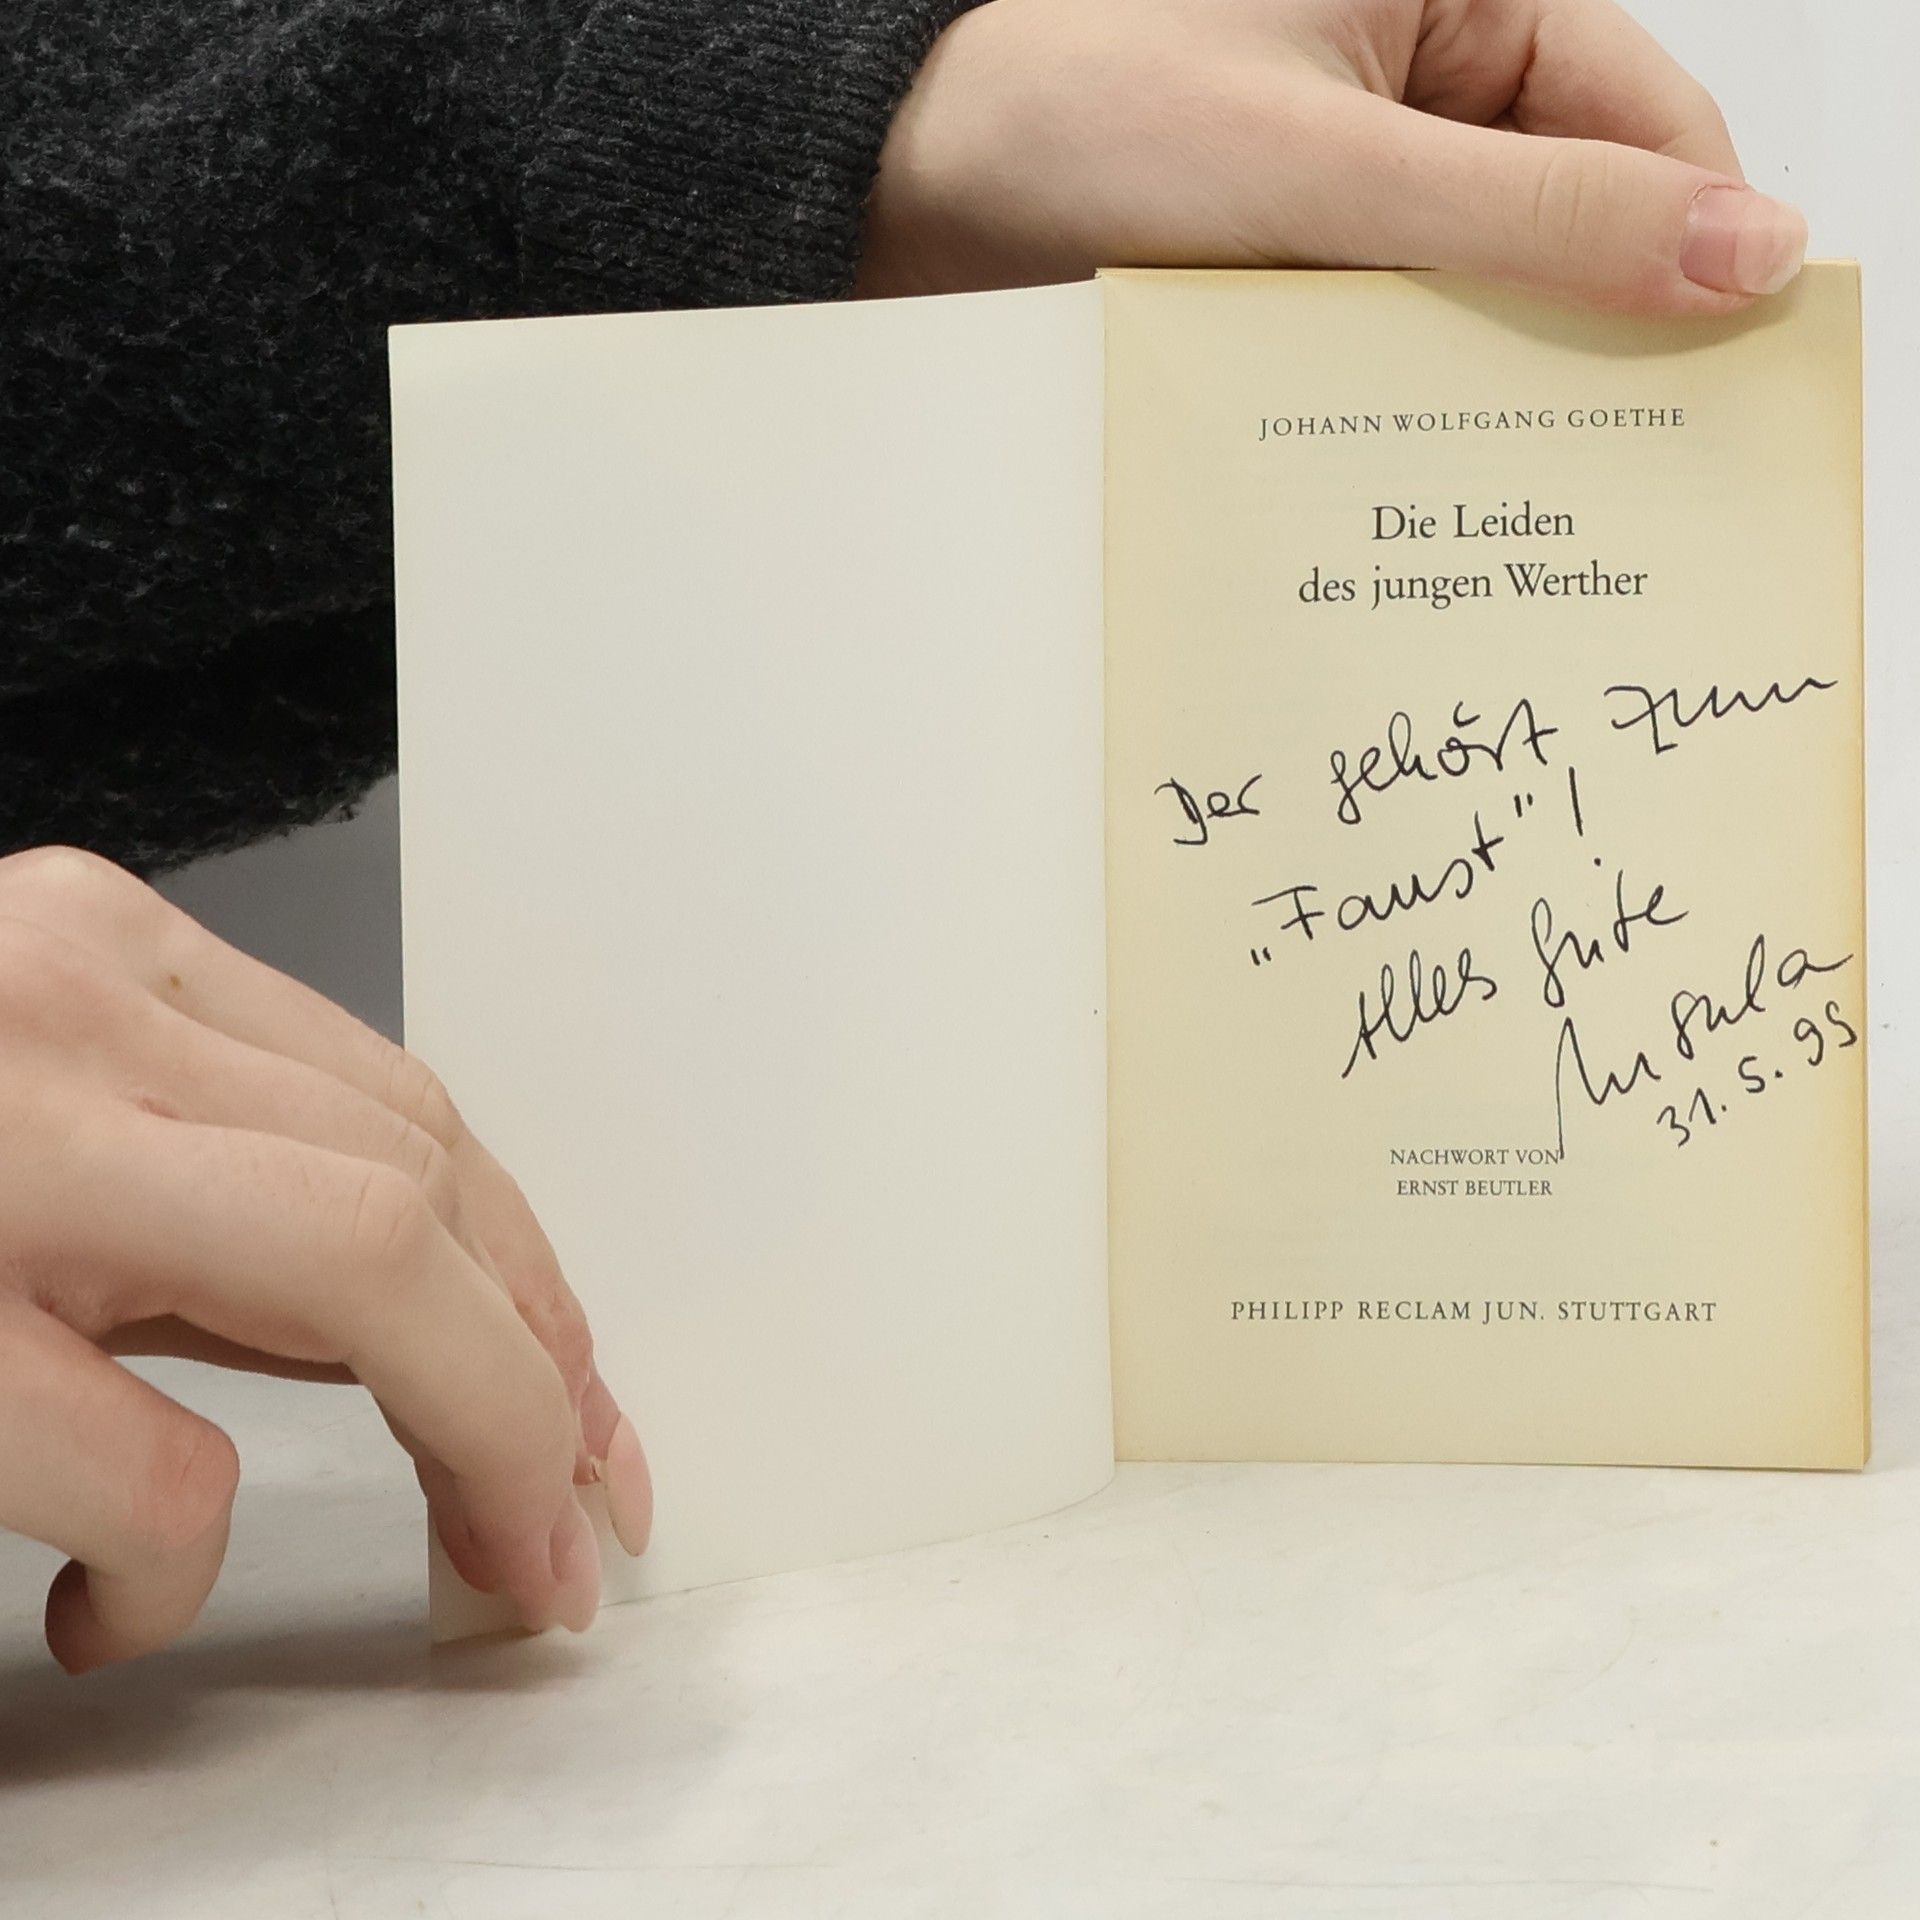 JOHANN WOLFGANG GOETHE
Die Leiden
des jungen Werther
Der gehört zum
„Faust"!
Alles Gute
Ursula
31.5.95
NACHWORT VON
ERNST BEUTLER
PHILIPP RECLAM JUN. STUTTGART